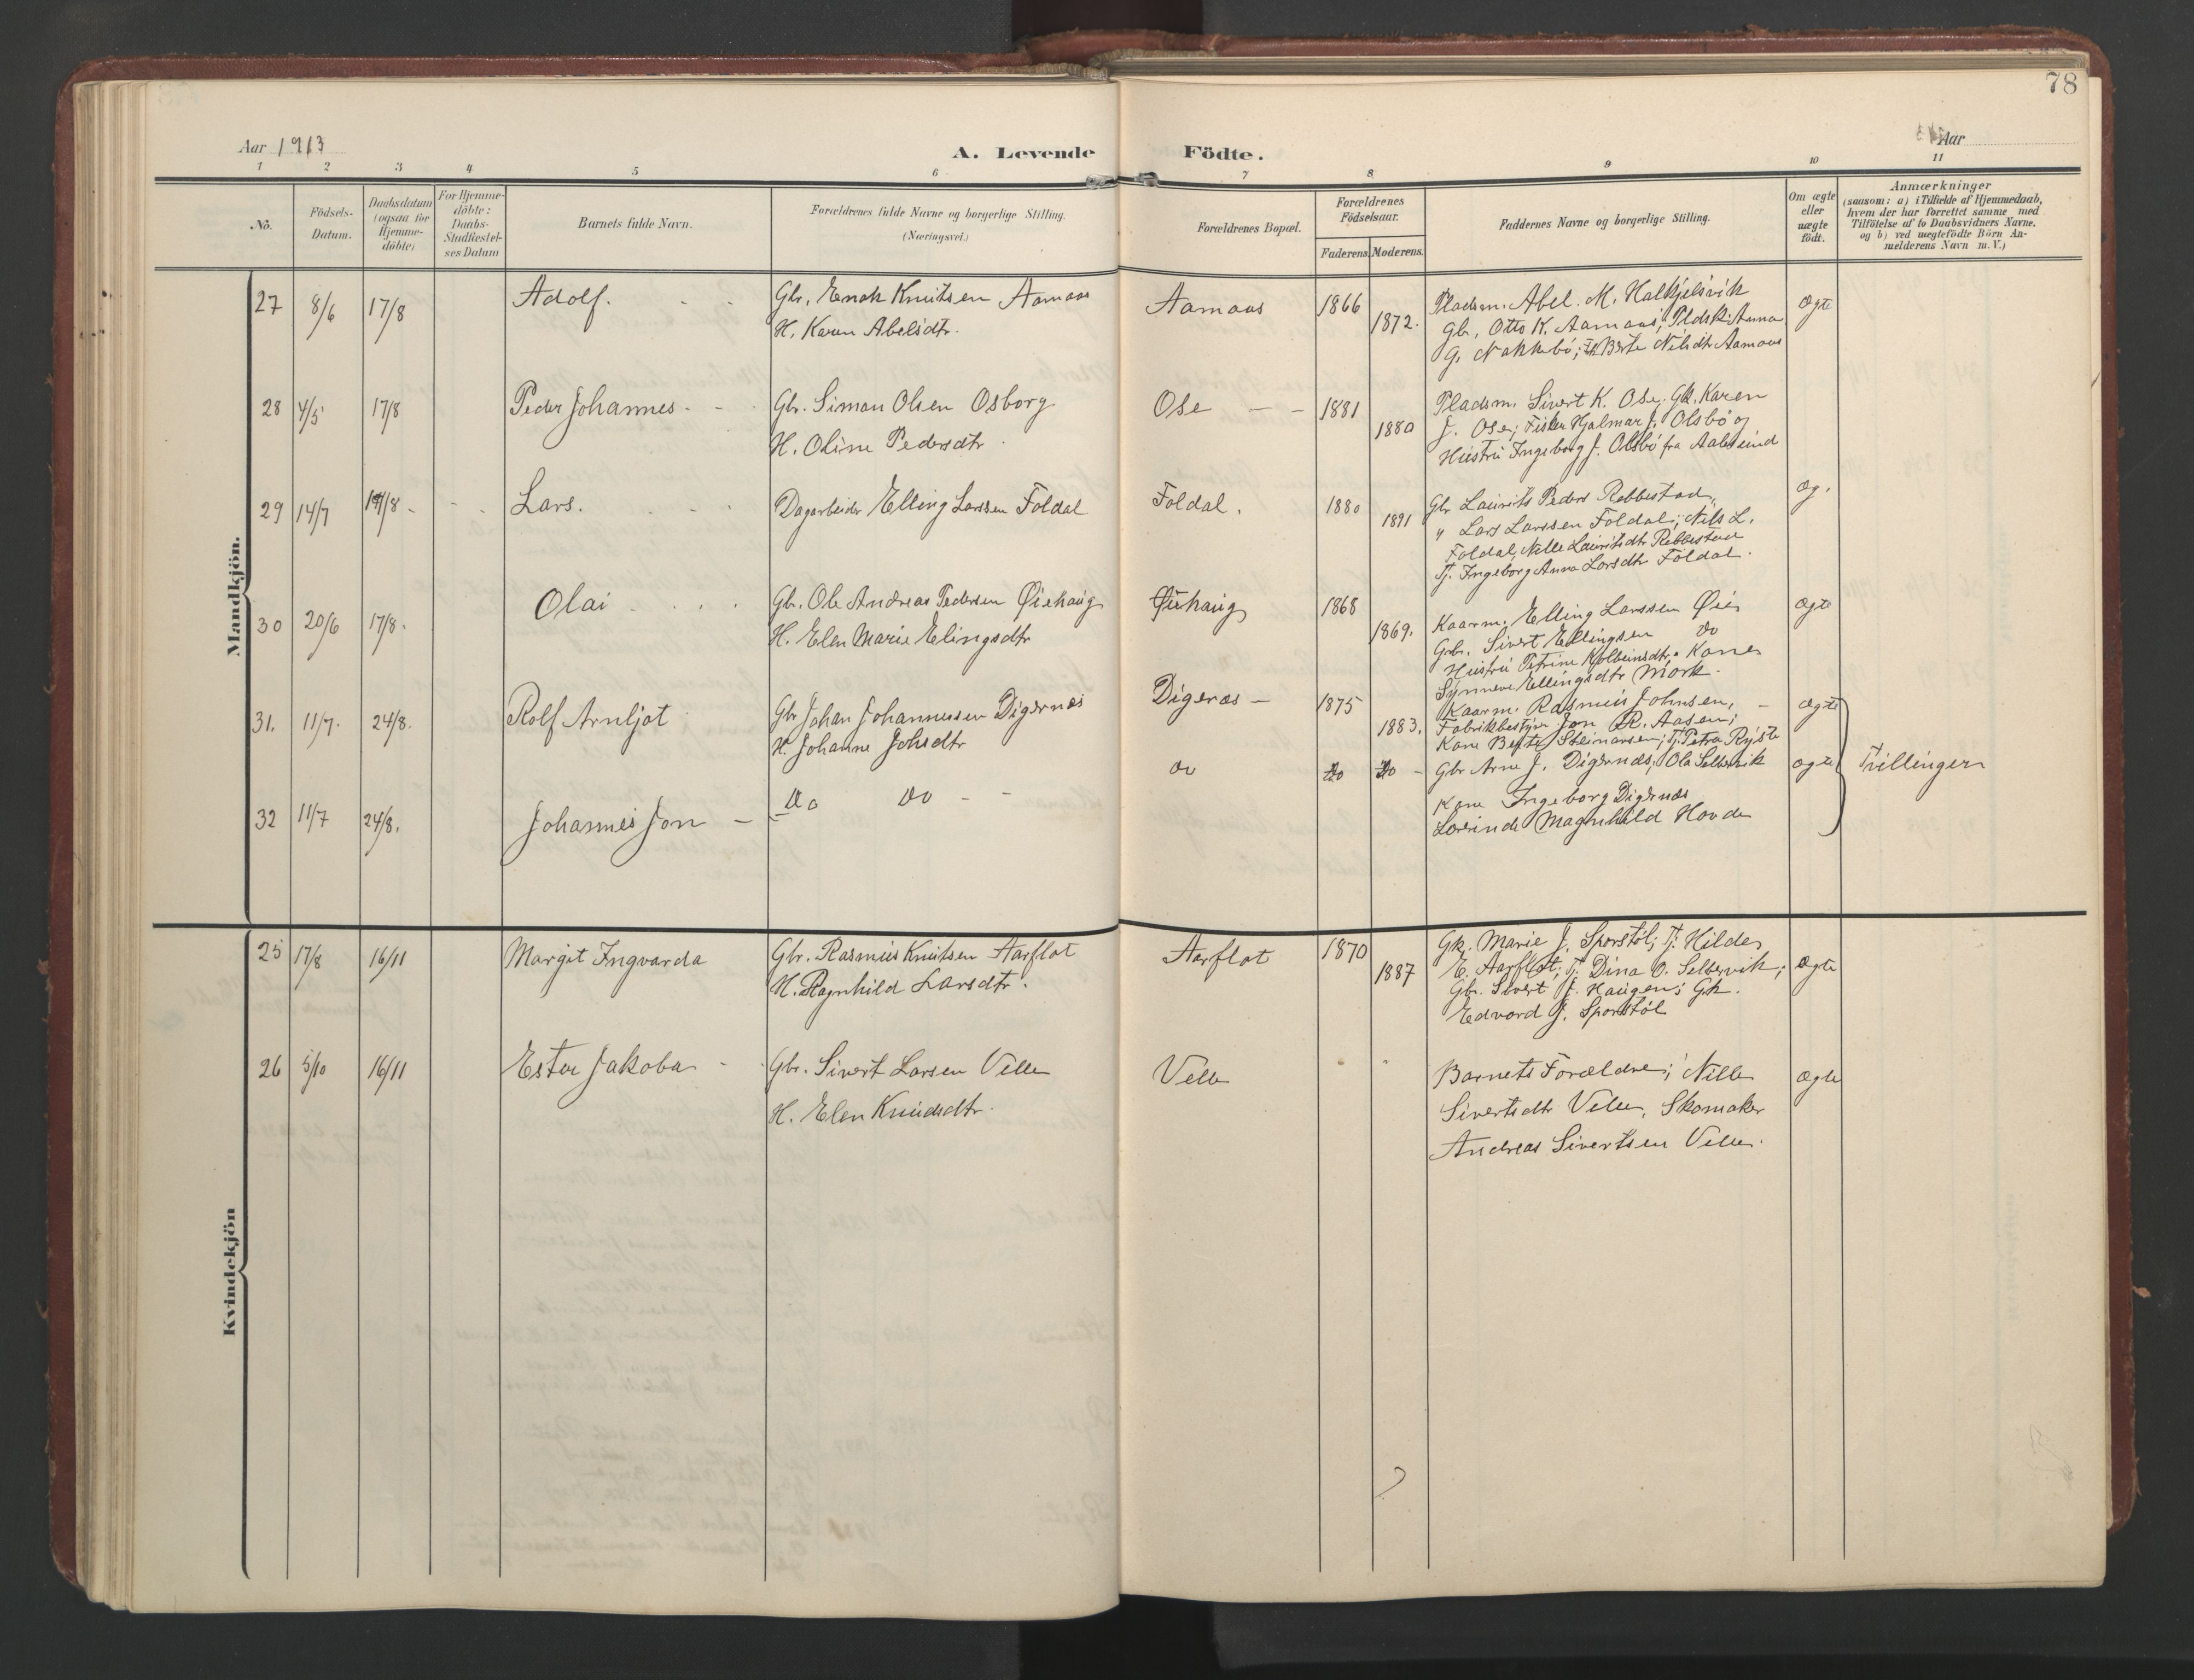 78
Aar 1913
A. Levende Födte.
Aar
1 2 3 4 5 6 7 8 9 10 11
No.
Födsels-Datum.
Daabsdatum (ogsaa for Hjemme-döbte)
For Hjemme-döbte: Daabs-Stadfæstel-ses Datum
Barnets fulde Navn.
Forældrenes fulde Navne og borgerlige Stilling.
(Næringsvei.)
Forældrenes Bopæl.
Forældrenes Födselsaar.
Faderens. Moderens.
Faddernes Navne og borgerlige Stilling.
Om ægte eller uægte födt.
Anmærkninger
(saasom: a) i Tilfælde af Hjemmedaab,
hvem der har forrettet samme med
Tilföielse af to Daabsvidners Navne,
og b) ved uægtefödte Börn An-
melderens Navn m. V.)
Mandkjön.
27 8/6 17/8 Adolf. Gbr. Enok Knutsen Aamaas Aamaas 1866 Pladsm. Abel M. Halkjelsvik ægte
H. Karen Abelsdtr. 1872. Gbr. Otto K. Aamaas; Pldsk. Anna
G. Nakkebö; Berte Nilsdtr Aamaas
28 4/5 17/8 Peder Johannes Gbr. Simon Olsen Osborg Ose 1881 Pladsm. Sivert K. Ose; Gk. Karen
H. Oline Pedersdtr. 1880 J. Ose; Fisker Hjalmar J. Olsbö og
Hustru Ingeborg J. Olsbö fra Aalesund
29 14/7 17/8 Lars. Dagarbeider Elling Larssen Foldal Foldal. 1880 1891 Gbr Laurits Peders Rebbestad, æg.
" Lars Larssen Foldal; Nils L.
Foldal, Nille Lauritsdtr Rebbestad
Tj. Ingeborg Anna Larsdtr Foldal.
30 20/6 17/8. Olai Gbr. Ole Andreas Pedersen Øiehaug Øiehaug 1868 Kaarm. Elling Larssen Øie ægte
H. Elen Marie Elingsdtr 1869. Gbr. Sivert Ellingsen do
Hustru Petrine Kolbeinsdtr, Kone
Synneve Ellingsdtr Mork.
31. 11/7. 24/8. Rolf Arnljot Gbr Johan Johannessen Digernæs Digeræs 1875 Kaarm. Rasmus Johnsen, ægte
H. Johanne Johsdtr 1883. Fabrikbestyrer Jon R. Aasen;
Kone Berte Steinarsen; Tj. Petra Ryste
32 11/7 24/8. Johannes Jon Do do do do do Gbr Arne J. Digernæs; Ola Selbervik ægte Tvillinger
Kone Ingeborg Digernæs
Magnhild Hovde
Kvindekjön
25 17/8 16/11 Margit Ingvarda Gbr. Rasmus Knutsen Aarflot Aarflot 1870 Gk. Marie J. Sporstöl; Tj. Hilde
H. Ragnhild Larsdtr. 1887 E. Aarflot; Tj. Dina O. Selbervik; ægte
Gbr. Sivert J. Haugen; Gk.
Edvard J. Sporstöl
26 5/10 16/11 Ester Jakoba Gbr. Sivert Larsen Velle Velle Barnets Forældre; Nille ægte
H. Elen Knudsdtr. Sivertsdtr Velle, Skomaker
Andreas Sivertsen Velle.